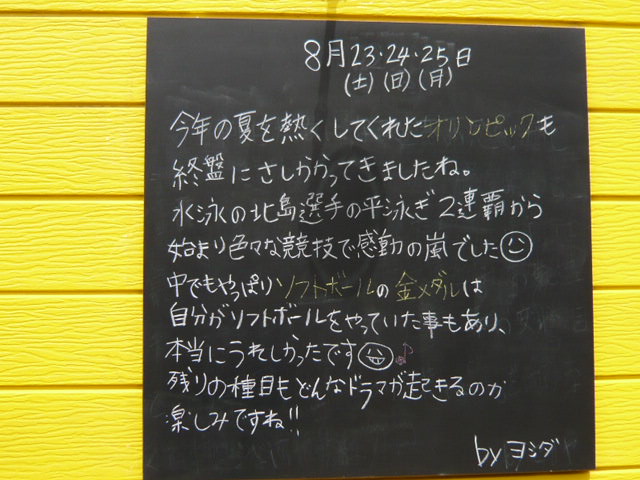 8月23・24・25日
(土)(日)(月)
今年の夏を熱くしてくれたオリンピックも
終盤にさしかかってきましたね。
水泳の北島選手の平泳ぎ2連覇から
始まり色々な競技で感動の嵐でした
中でもやっぱりソフトボールの金メダルは
自分がソフトボールをやっていた事もあり、
本当にうれしかったです♪
残りの種目もどんなドラマが起きるのか
楽しみですね!!
by ヨシダ